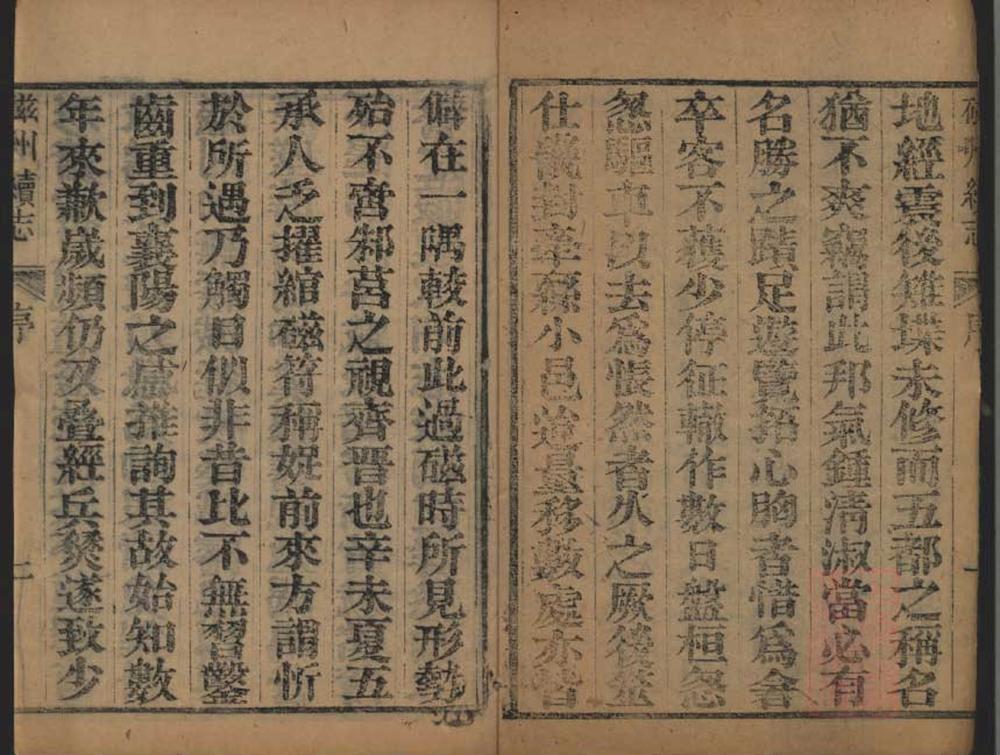 地經震後雉堞未修而五都之稱名
猶不爽竊謂此邦氣鍾淸淑當必有
名勝之蹟足遊覽拓心胸者惜爲會
卒卒不獲少停征轍作數日盤桓忽
忽驅車以去爲悵然者久之厥後筮
仕儀封牽絲小邑嗣量移數處亦皆
僻在一隅較前此過磁時所見形勢
殆不啻邾莒之視齊晋也辛未夏五
承人乏擢綰磁符稱娖前來方謂忻
於所遇乃觸目似非昔比不無習鑿
齒重到襄陽之感推詢其故始知數
年來歉歲頻仍又叠經兵燹遂致少
磁州續志
序